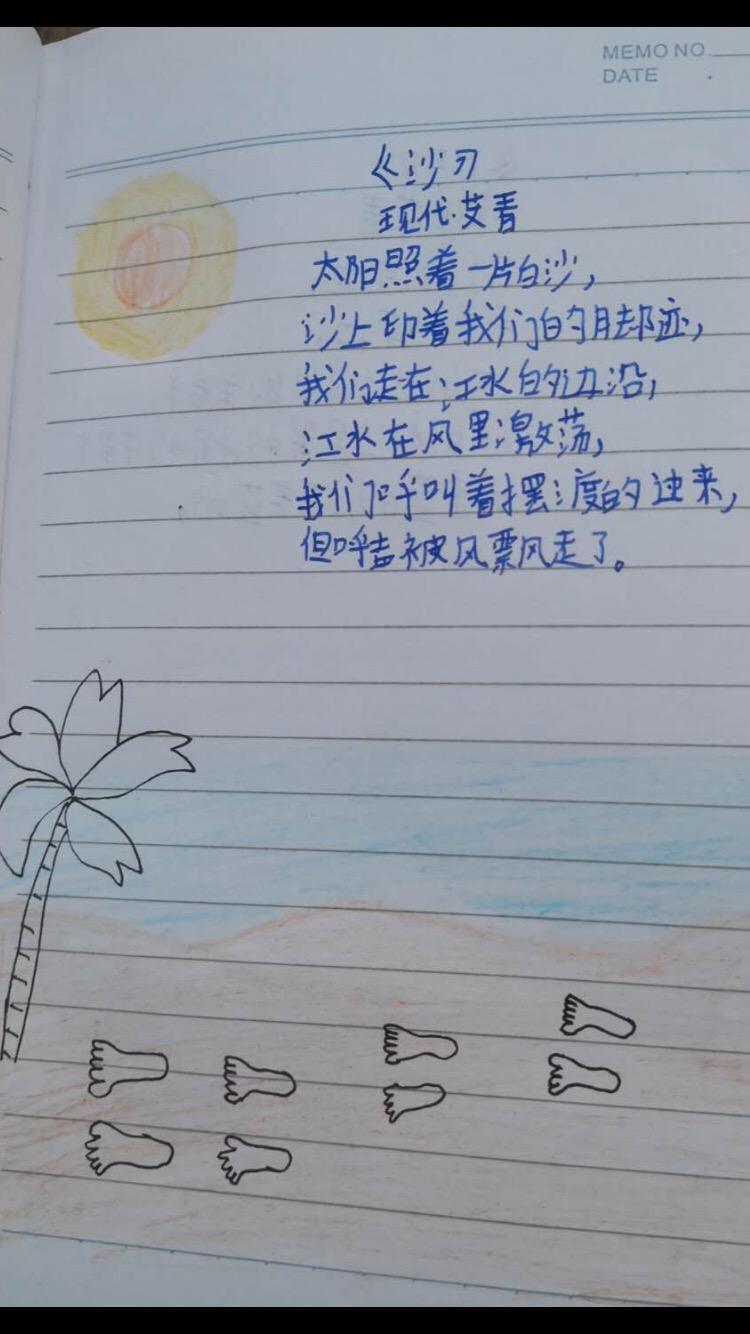 MEMO NO.
DATE
《沙》
现代·艾青
太阳照着一片白沙，
沙上印着我们的脚迹，
我们走在江水的边沿，
江水在风里激荡，
我们呼叫着摆渡的过来，
但呼声被风飘走了。